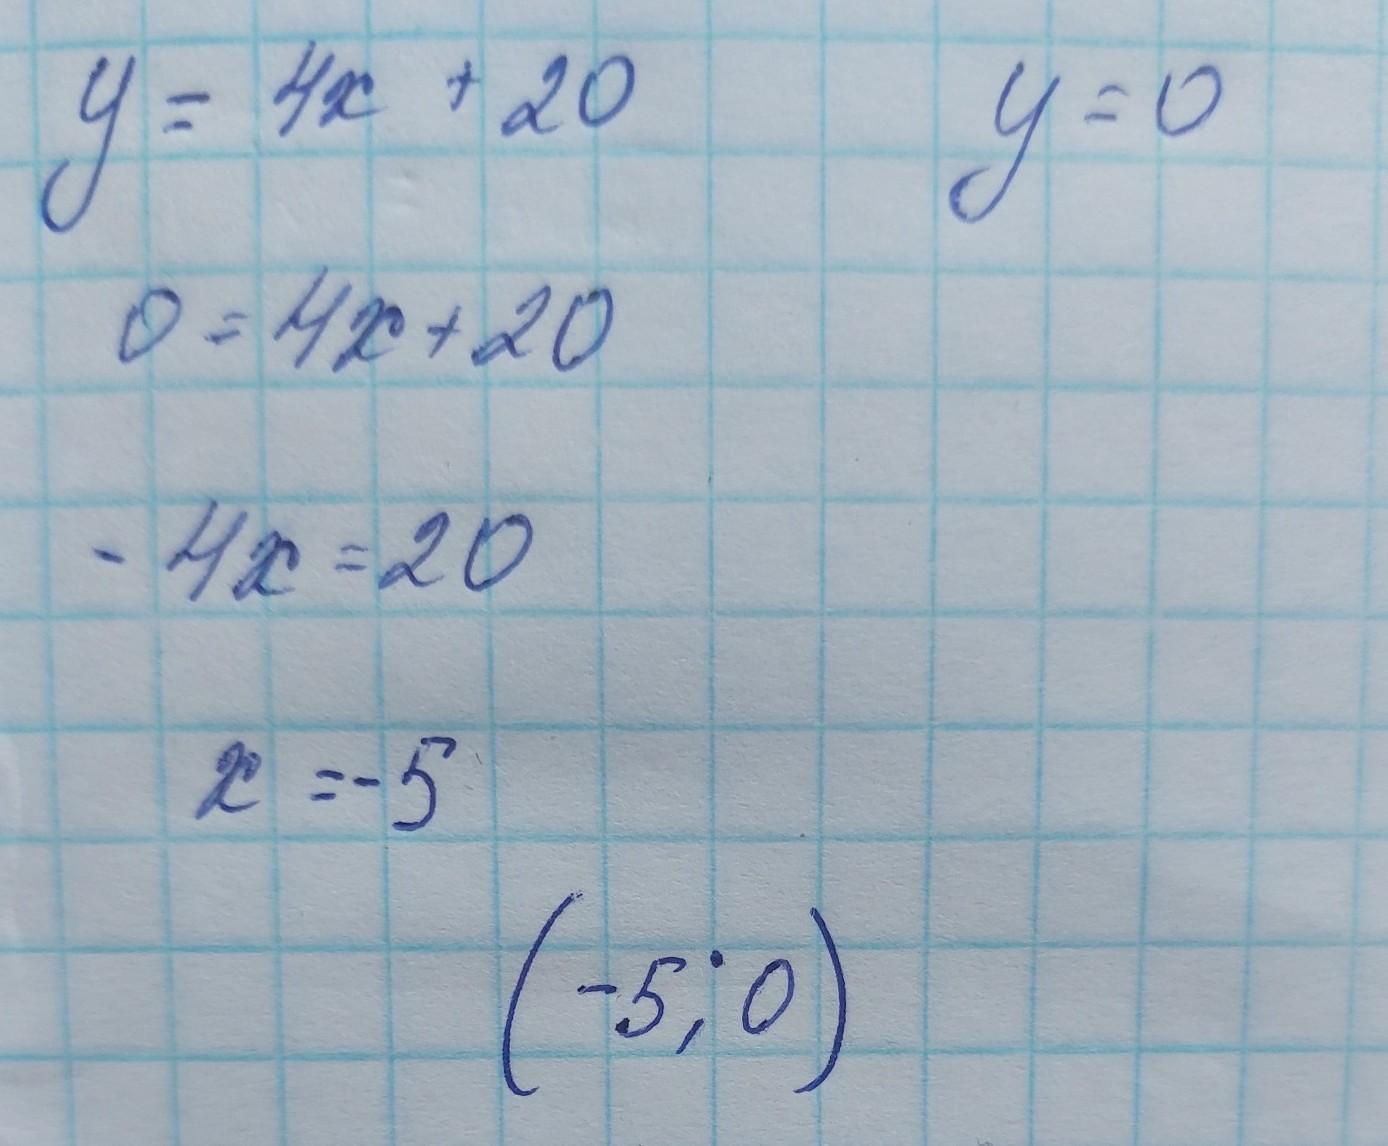 y = 4x + 20
y = 0
0 = 4x + 20
- 4x = 20
x = -5
(-5; 0)